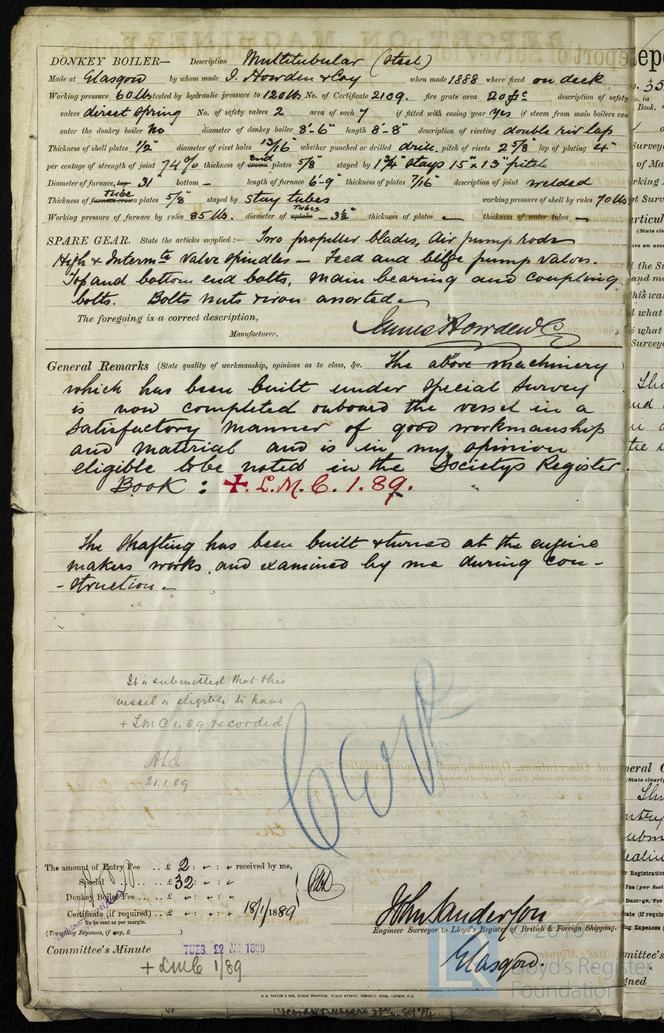 DONKEY BOILER— Description Multitubular (Steel)
Made at Glasgow by whom made J. Howden & Coy when made 1888 where fixed on deck
Working pressure 60 lbs tested by hydraulic pressure to 120 lbs No. of Certificate 2109. fire grate area 20 description of safety
valves direct Spring No. of safety valves 2 area of each 7 if fitted with easing gear Yes if steam from main boilers can
enter the donkey boiler No diameter of donkey boiler 8'-6" length 8'-8" description of riveting double riv lap
Thickness of shell plates 1/2" diameter of rivet holes 13/16" whether punched or drilled drill, pitch of rivets 2 5/8 lap of plating 4"
per centage of strength of joint 74% thickness of crown end plates 5/8" stayed by stays 15" x 13" pitch
Diameter of furnace, top 31 bottom – length of furnace 6'-9" thickness of plates 7/16" description of joint welded
Thickness of furnace crown Tube plates 5/8 stayed by Stay tubes working pressure of shell by rules 70 lbs
Working pressure of furnace by rules 85 lbs. diameter of uptake Tubes – 3 1/2" thickness of plates – thickness of water tubes –
SPARE GEAR. State the articles supplied:— Two propeller blades, Air pump rods
High & Intermte Valve Spindles – Feed and bilge pump valves.
Top and bottom end bolts, main bearing and coupling
bolts. Bolts nuts & iron assorted –
The foregoing is a correct description,
Manufacturer. James Howden & Co
General Remarks (State quality of workmanship, opinions as to class, &c. The above machinery
which has been built under Special Survey
is now completed onboard the vessel in a
Satisfactory manner of good workmanship
and material and is in my opinion
eligible to be noted in the Societys Register
Book : ✠. L.M.C. 1. 89.
The Shafting has been built & turned at the engine
makers works, and examined by me during con-
-struction –
It is submitted that this
vessel is eligible to have
+ LMC 1.89 recorded
21.1.89
The amount of Entry Fee .. £ 2 : - : - received by me,
Special .. £ 32 : - : -
Donkey Boiler Fee .. £ : :
Certificate (if required) .. £ : : 18/1/1889
To be sent as per margin.
(Travelling Expenses, if any, £ )
John Sanderson
Engineer Surveyor to Lloyd's Register of British & Foreign Shipping.
Glasgow.
Committee's Minute TUES. 22 JAN 1889
+ LMC 1/89
Lloyd's Register
Foundation